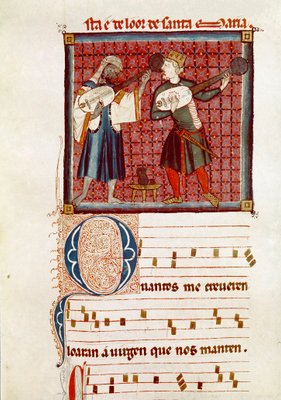 sta e de loor de santa Maria.
Quantos me creueren
loaran a uirgen que nos manten.